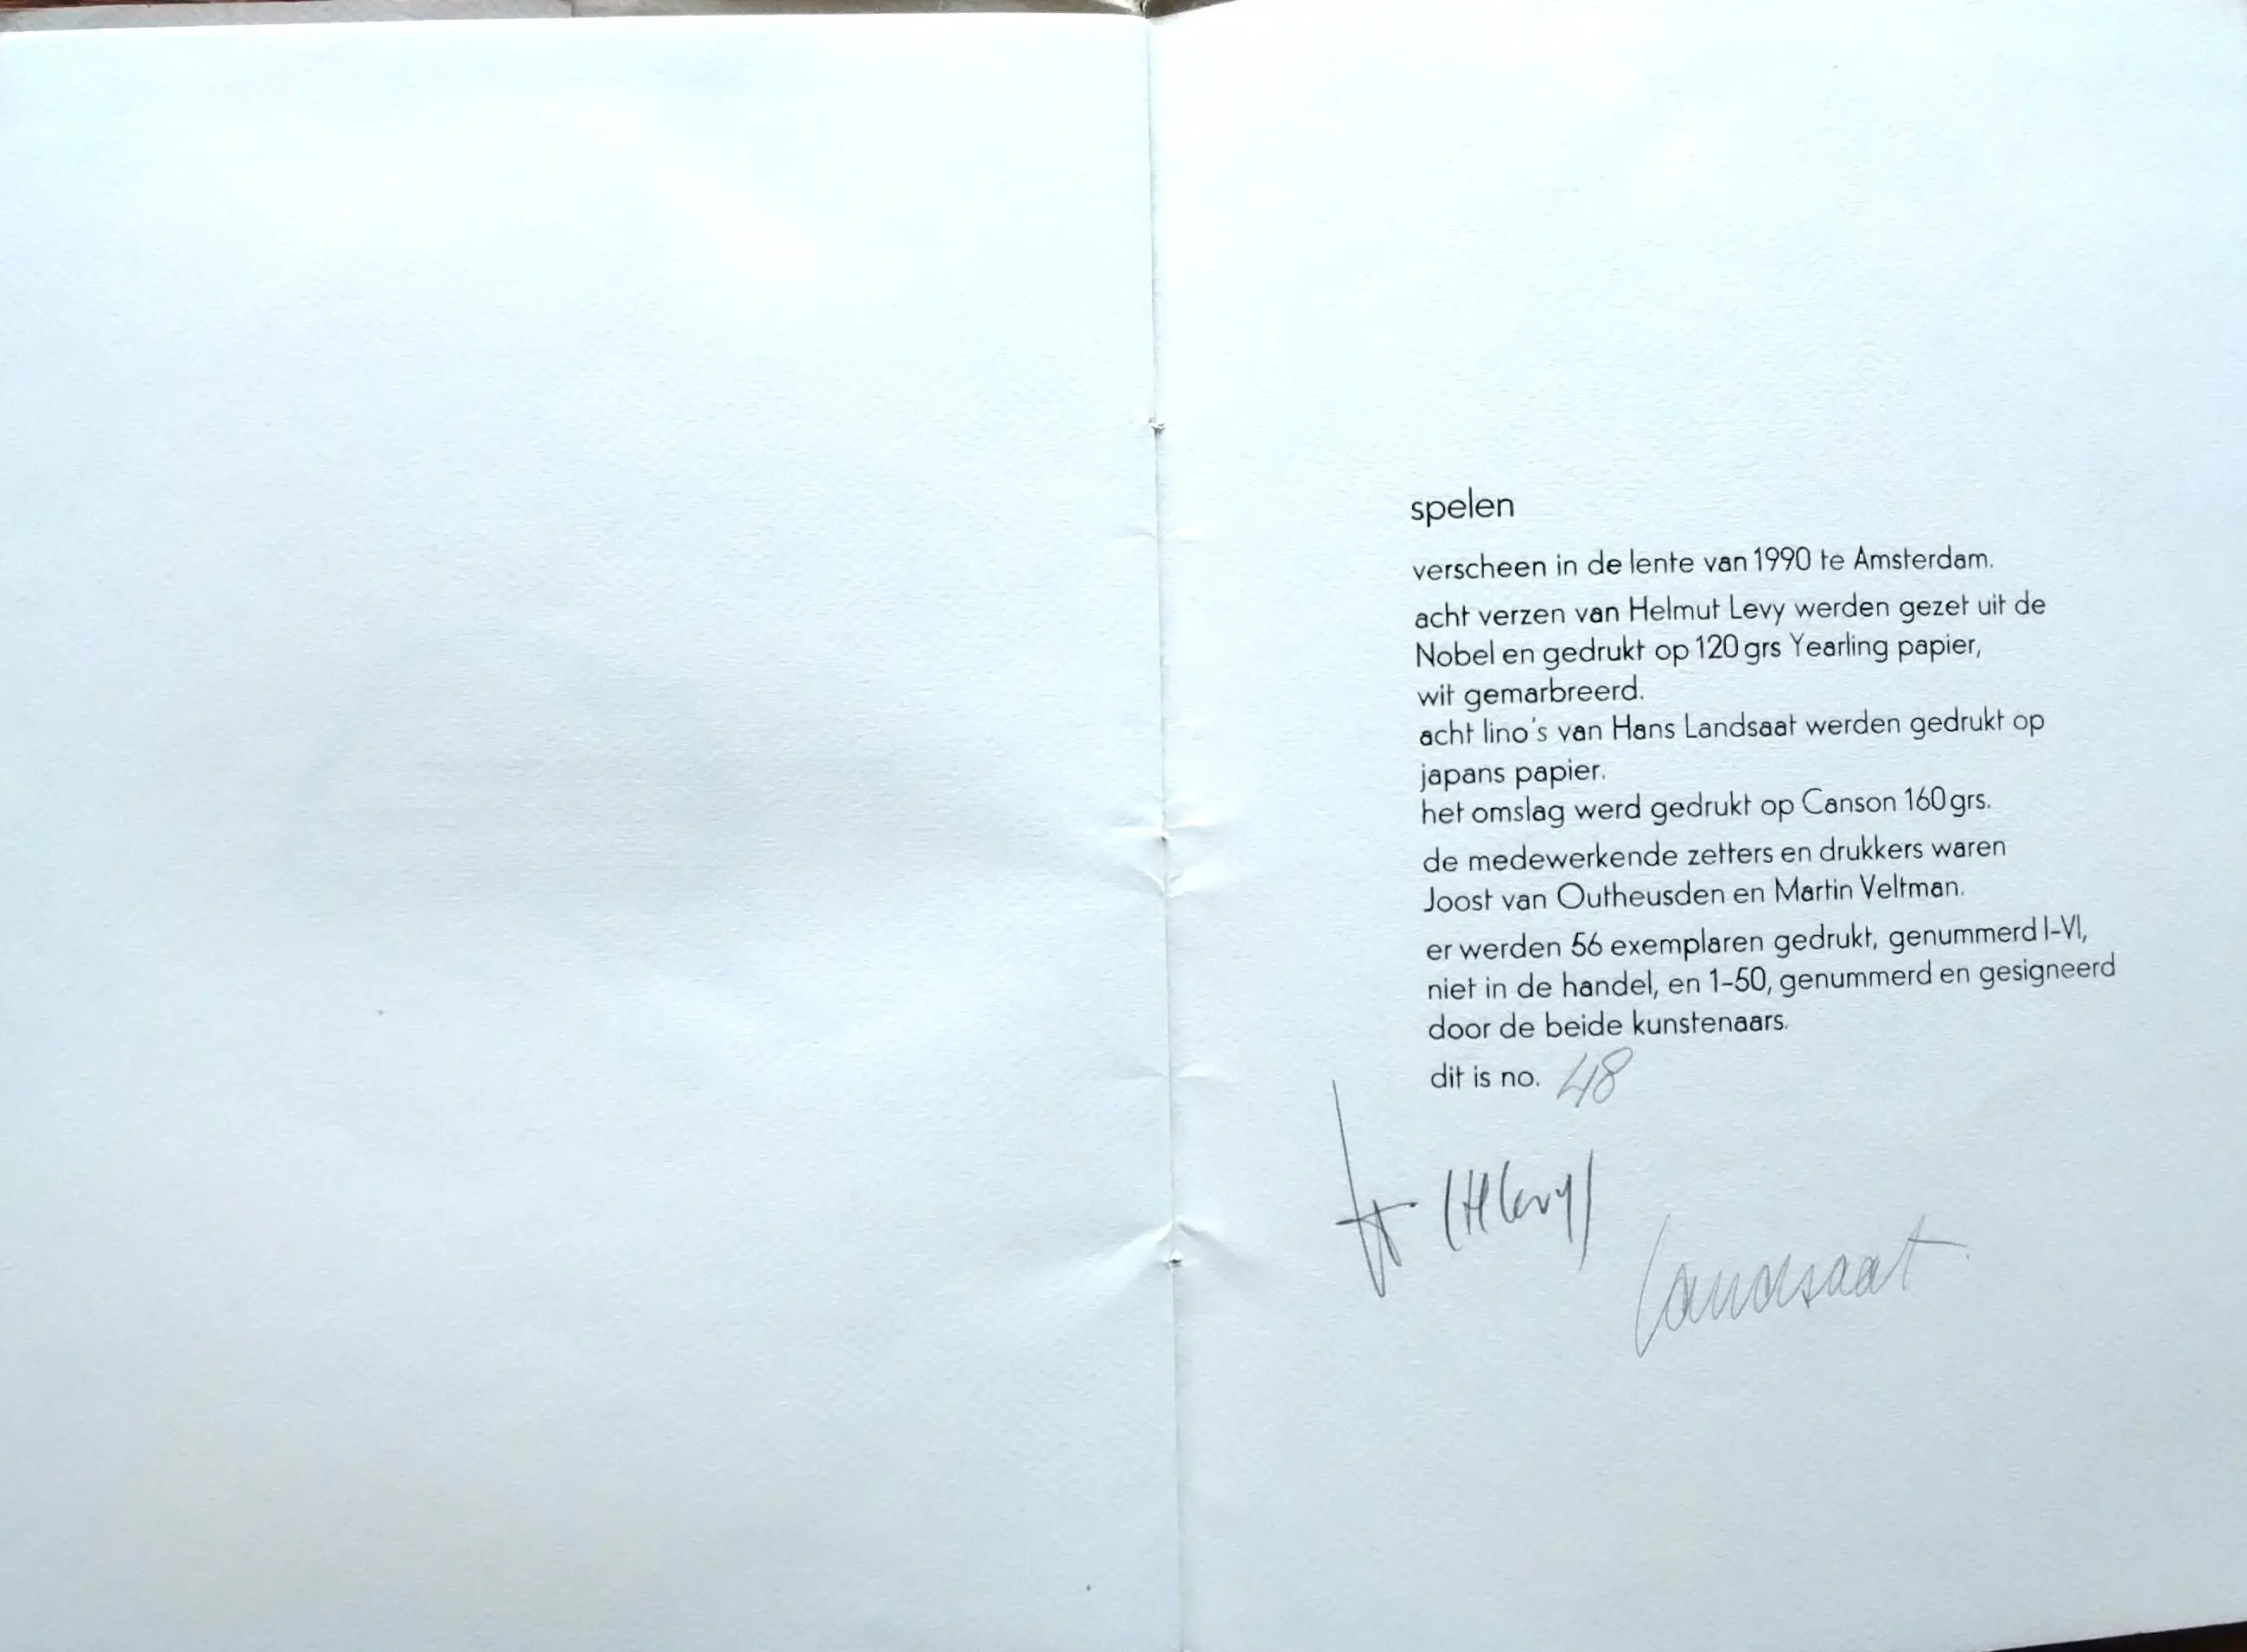 spelen
verscheen in de lente van 1990 te Amsterdam.
acht verzen van Helmut Levy werden gezet uit de
Nobel en gedrukt op 120 grs Yearling papier,
wit gemarbreerd.
acht lino's van Hans Landsaat werden gedrukt op
japans papier.
het omslag werd gedrukt op Canson 160 grs.
de medewerkende zetters en drukkers waren
Joost van Outheusden en Martin Veltman.
er werden 56 exemplaren gedrukt, genummerd I-VI,
niet in de handel, en 1-50, genummerd en gesigneerd
door de beide kunstenaars.
dit is no. 48
(H Levy)
Landsaat.